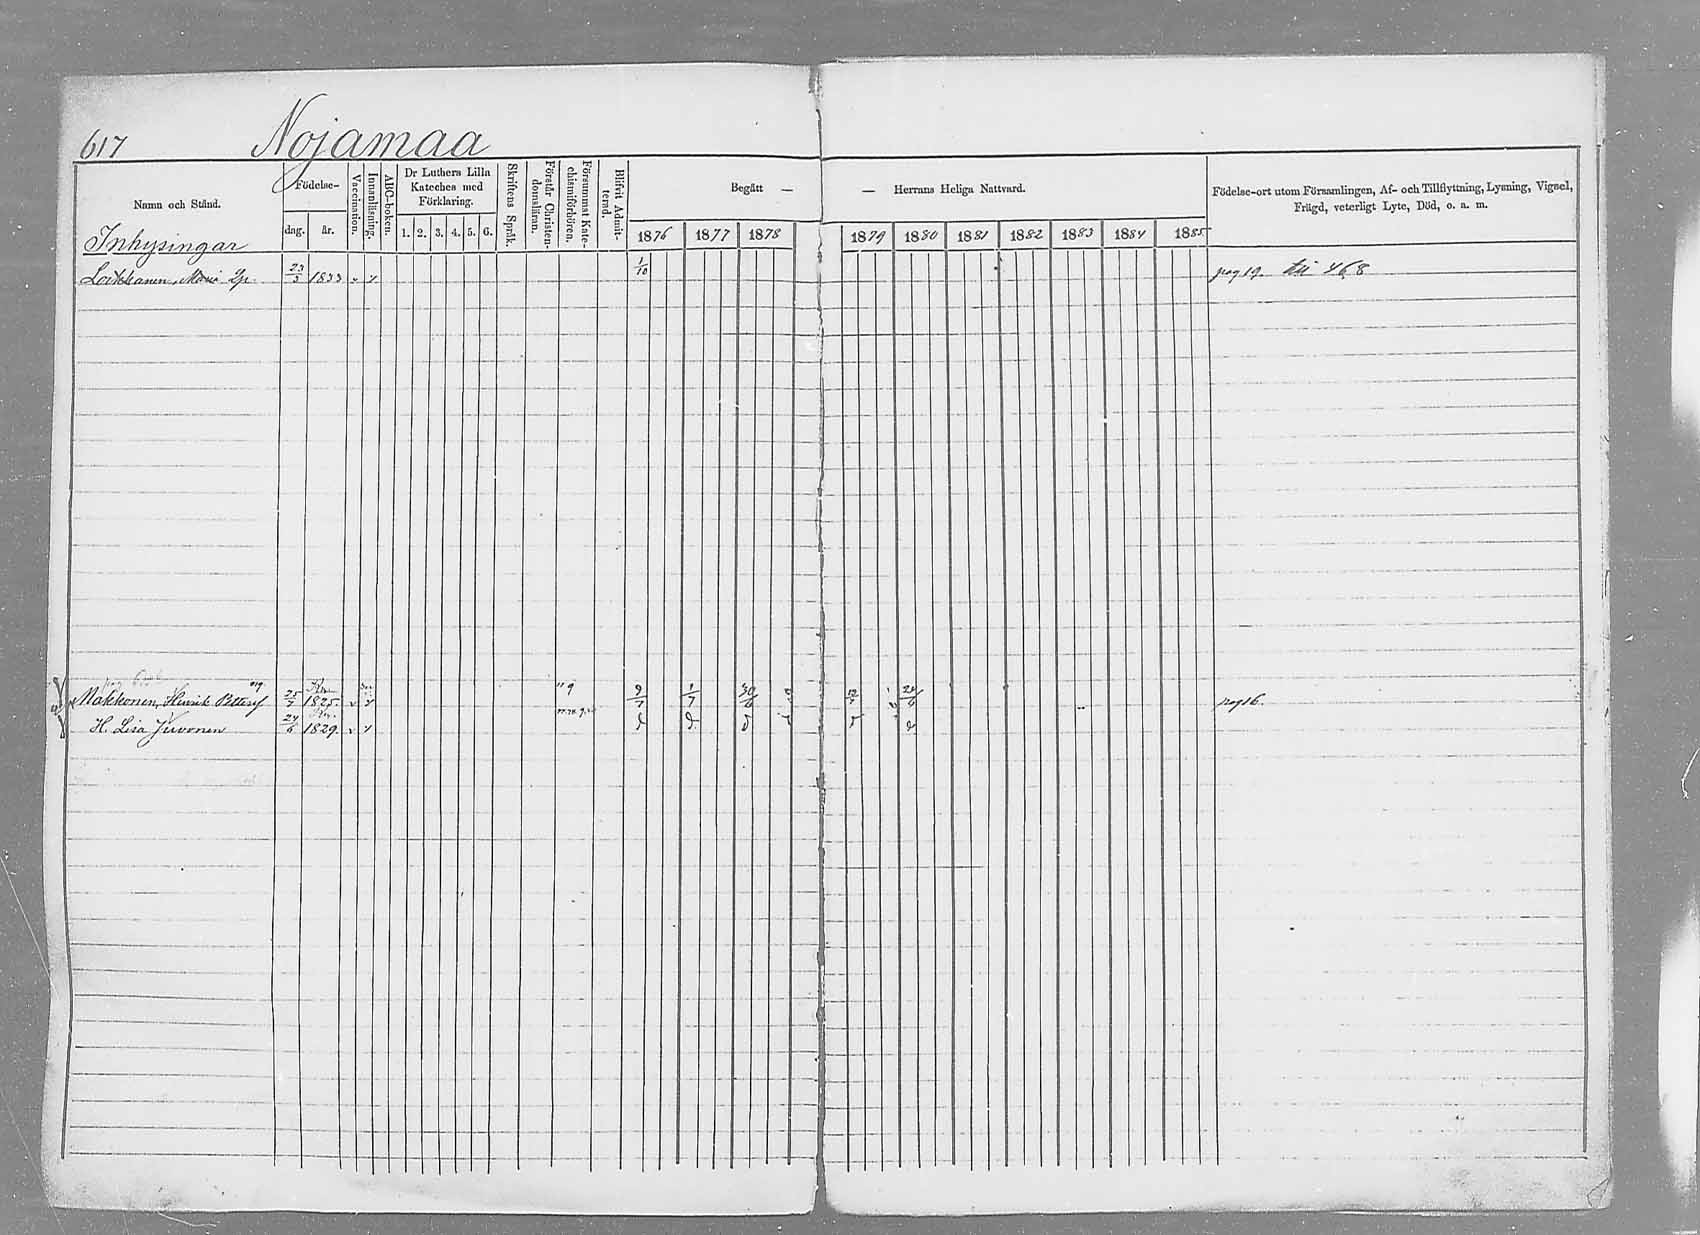 617 Nojamaa
Namn och Stånd.
Födelse-
dag. år.
Vaccination.
Innanläsning.
ABC-boken.
Dr Luthers Lilla
Kateches med
Förklaring.
1. 2. 3. 4. 5. 6.
Skriftens Språk.
Förstår Christen-
domsläran.
Försummat Kate-
chismiförhören.
Blifvit Admit-
terad.
Begått — — Herrans Heliga Nattvard.
1876 1877 1878 1879 1880 1881 1882 1883 1884 1885
Födelse-ort utom Församlingen, Af- och Tillflyttning, Lysning, Vigsel,
Frägd, veterligt Lyte, Död, o. a. m.
Inhysingar
Loikkanen, Maria 23/3 1833 1/10 pag 19. till 468
Makkonen, Henrik Petters 25/7 1825. 9/7 1/7 30/6 pag 16.
H. Lisa Juvonen 24/6 1829. d d d d d